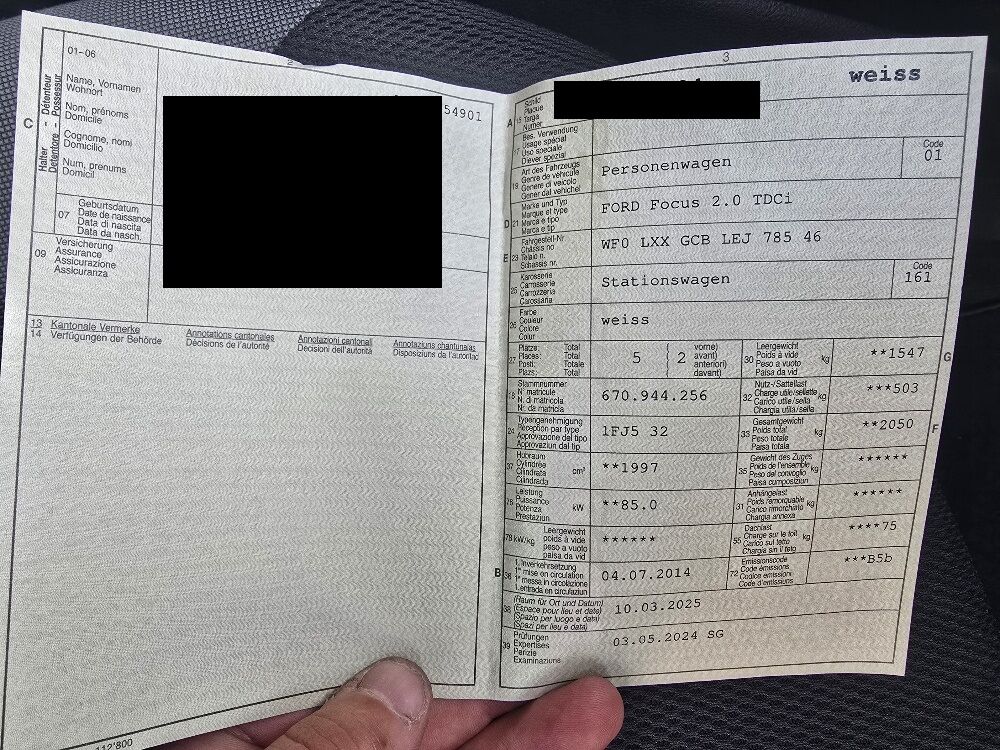 2
01-06
Détenteur
Possessur
Halter
Detentore
C
Name, Vornamen
Wohnort
Nom, prénoms
Domicile
Cognome, nomi
Domicilio
Num, prenums
Domicil
54901
07
Geburtsdatum
Date de naissance
Data di nascita
Data da nasch.
09
Versicherung
Assurance
Assicurazione
Assicuranza
13 Kantonale Vermerke Annotations cantonales Annotazioni cantonali Annotaziuns chantunalas
14 Verfügungen der Behörde Décisions de l'autorité Decisioni dell'autorità Disposiziuns da l'autoritad
112'800
3
weiss
A 15
Schild
Plaque
Targa
Numer
17
Bes. Verwendung
Usage spécial
Uso speciale
Diever spezial
19
Art des Fahrzeugs
Genre de véhicule
Genere di veicolo
Gener dal vehichel
Personenwagen
Code
01
D 21
Marke und Typ
Marque et type
Marca e tipo
Marca e tip
FORD Focus 2.0 TDCi
E 23
Fahrgestell-Nr
Châssis no
Telaio n.
Schassis nr.
WF0 LXX GCB LEJ 785 46
25
Karosserie
Carrosserie
Carrozzeria
Carossaria
Stationswagen
Code
161
26
Farbe
Couleur
Colore
Colur
weiss
27
Plätze: Total
Places: Total
Posti: Totale
Plazs: Total
5
2
vorne)
avant)
anteriori)
davant)
30
Leergewicht
Poids à vide
Peso a vuoto
Paisa da vid
kg
**1547
G
18
Stammnummer
N° matricule
N. di matricola
Nr. da matricla
670.944.256
32
Nutz-/Sattellast
Charge utile/sellette
Carico utile/sella
Chargia utila/sella
kg
***503
24
Typengenehmigung
Réception par type
Approvazione del tipo
Approvaziun dal tip
1FJ5 32
33
Gesamtgewicht
Poids total
Peso totale
Paisa totala
kg
**2050
F
37
Hubraum
Cylindrée
Cilindrata
Cilindrada
cm³
**1997
35
Gewicht des Zuges
Poids de l'ensemble
Peso del convoglio
Paisa cumposiziun
kg
******
76
Leistung
Puissance
Potenza
Prestaziun
kW
**85.0
31
Anhängelast
Poids remorquable
Carico rimorchiato
Chargia annexa
kg
******
78 kW/kg
Leergewicht
poids à vide
peso a vuoto
paisa da vid
******
55
Dachlast
Charge sur le toit
Carico sul tetto
Chargia sin il tetg
kg
****75
B 36
1. Inverkehrsetzung
1re mise en circulation
1a messa in circolazione
1. entrada en circulaziun
04.07.2014
72
Emissionscode
Code émissions
Codice emissioni
Code d'emissiuns
***B5b
38
(Raum für Ort und Datum)
(Espace pour lieu et date)
(Spazio per luogo e data)
(Spazi per lieu e data)
10.03.2025
39
Prüfungen
Expertises
Perizie
Examinaziuns
03.05.2024 SG